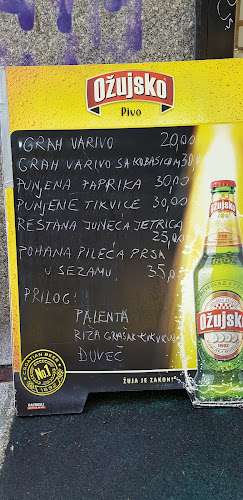 Ožujsko
Pivo
GRAH VARIVO 20,00
GRAH VARIVO SA KOBASICOM 30,00
PUNJENA PAPRIKA 30,00
PUNJENE TIKVICE 30,00
REŠTANA JUNEĆA JETRICA
25,00
POHANA PILEĆA PRSA
U SEZAMU 35,0
PRILOG:
PALENTA
RIZA GRAŠAK+KUKURUZ
ĐUVEČ
Ožujsko
Ožujsko
1892
CROATIAN BEER
No.1
1892
ŽUJA JE ZAKON!